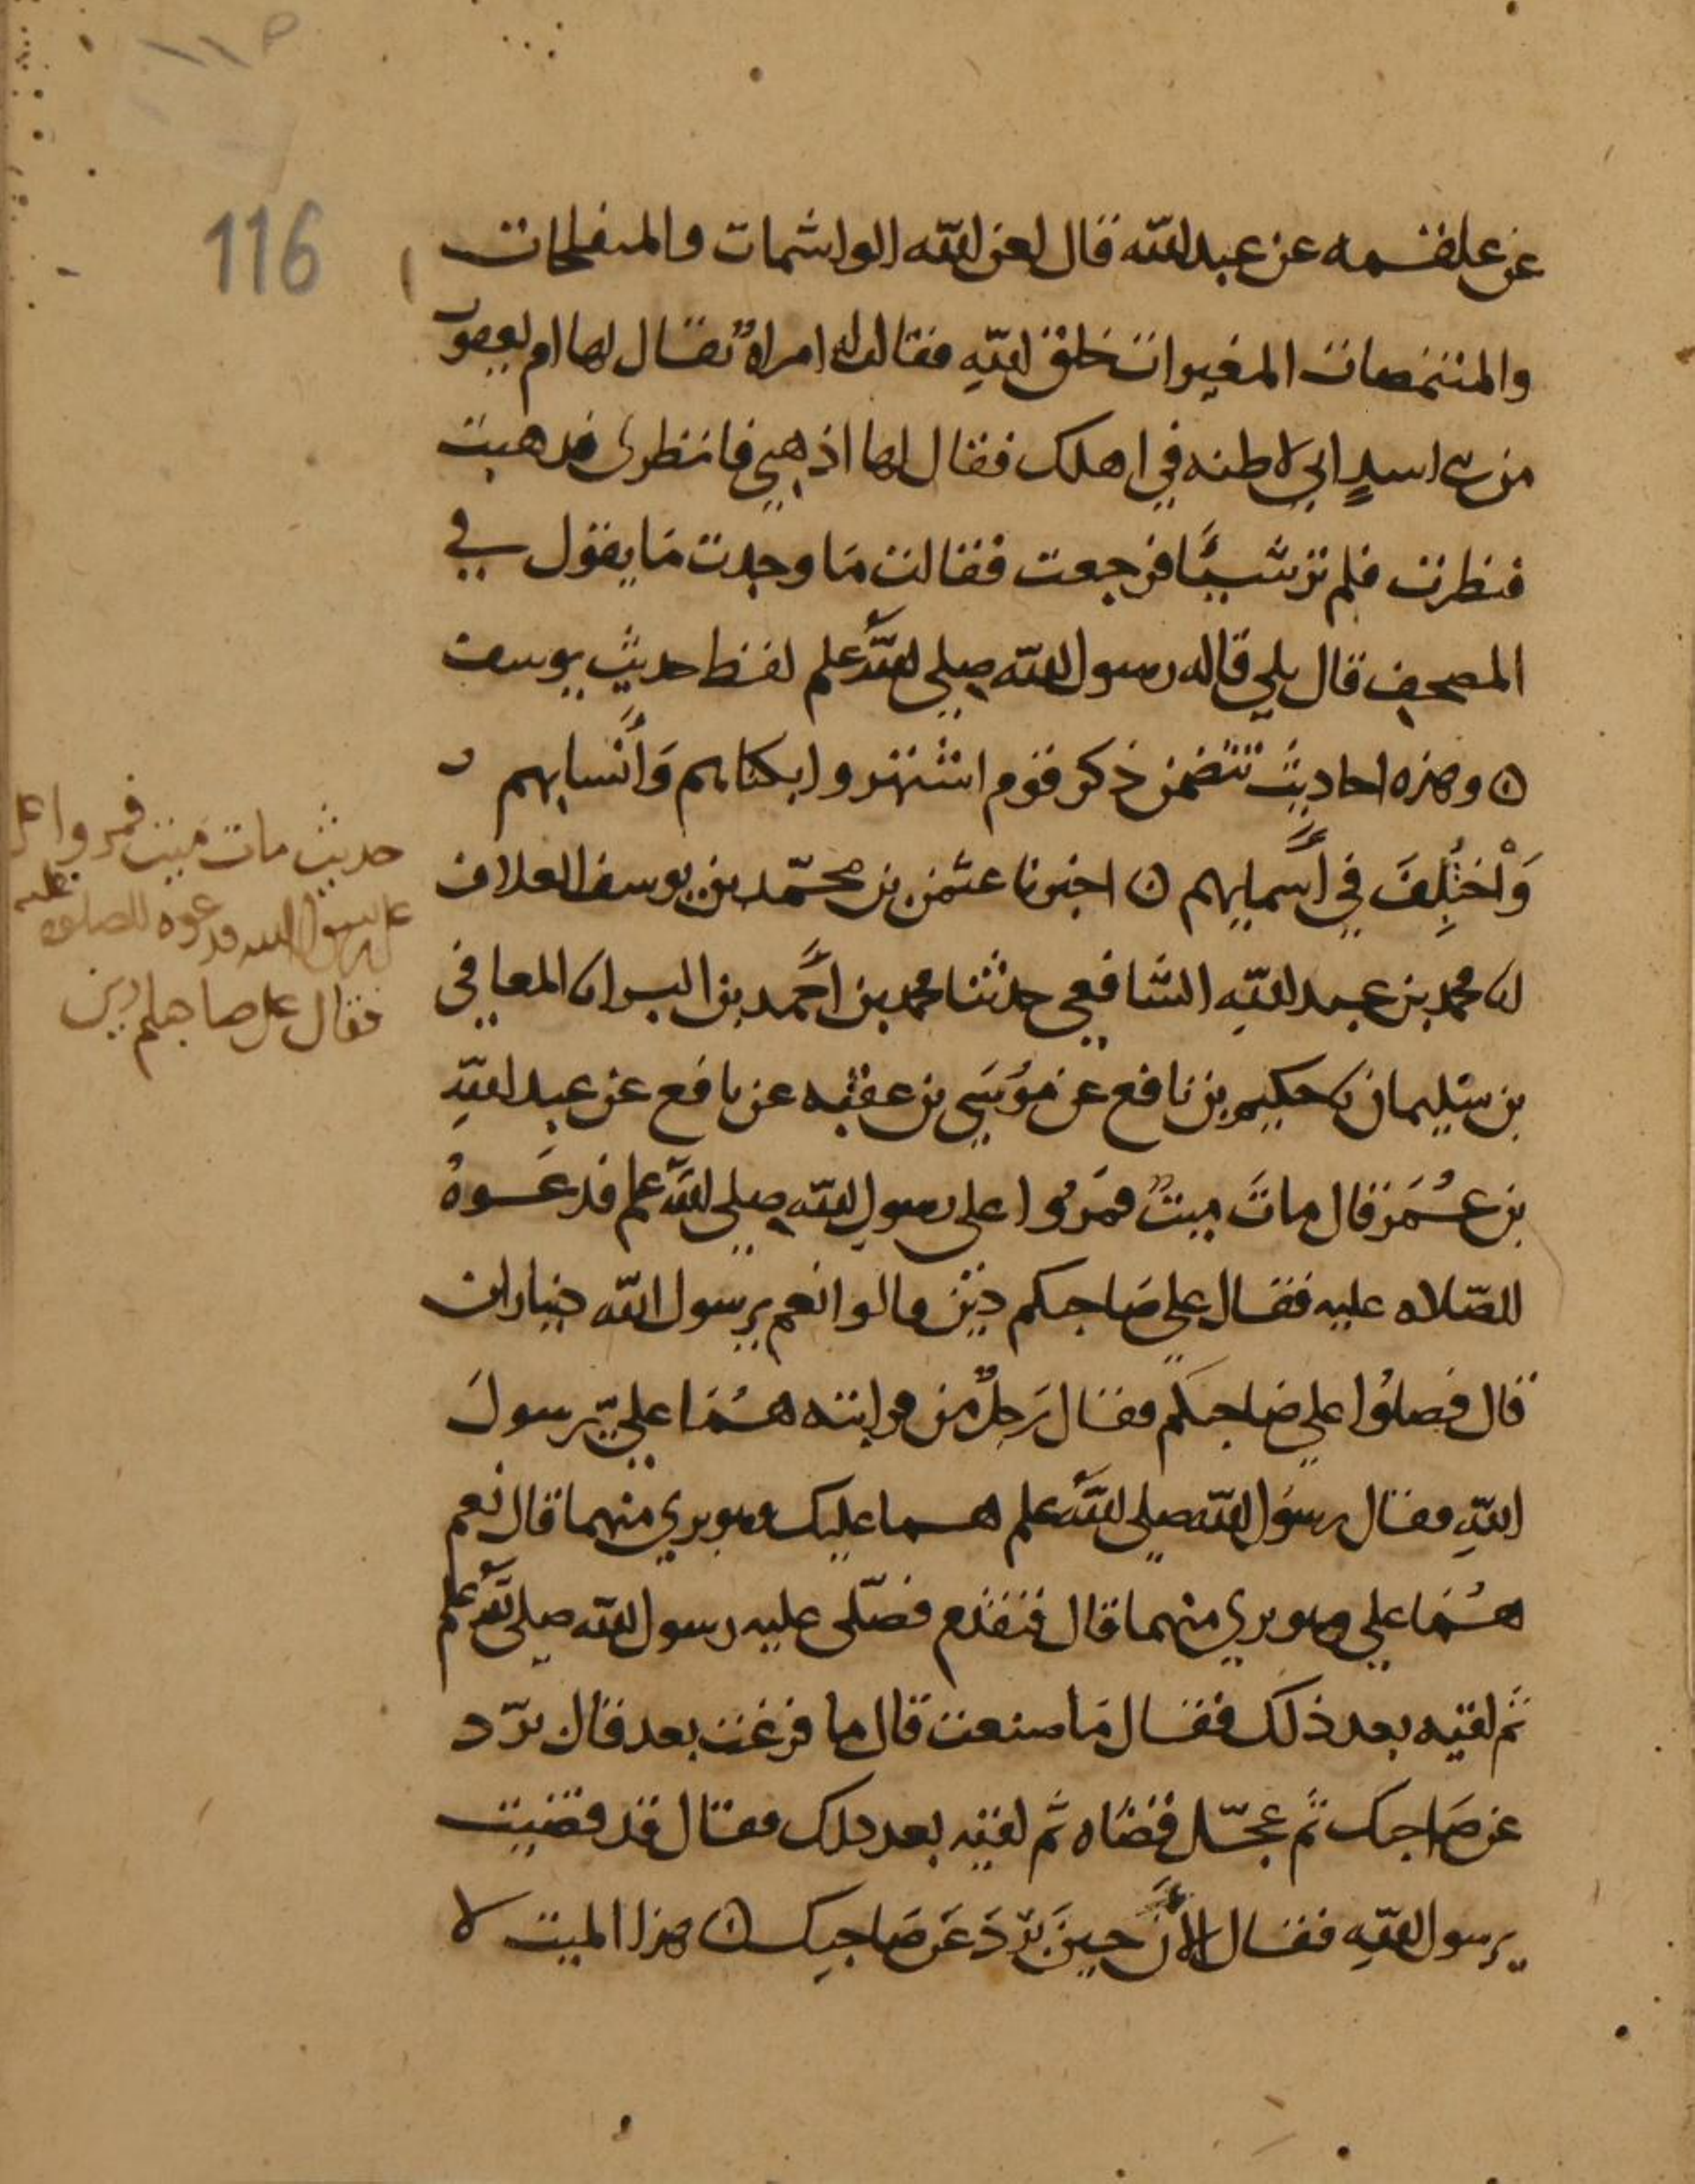 116
عن علقمه عن عبد الله قال لعن الله الواشمات والمتفلجات
والمتنمصات المغيرات خلق الله فقالت له امراةٌ تقال لها ام يعقوب
من بني اسدٍ اني لاظنه في اهلك فقال لها اذهبي فانظري فذهبت
فنظرت فلم تر شيئًا فرجعت فقالت مَا وجدت مَا يقول في
المصحف قال بلي قاله رسول الله صلى الله علم لفظ حديث يوسف
ن وهذه احاديث تتضمن ذكر قوم اشتهروا بكناهم وَأنسابهم
وَاْختُلِفَ في أَسمايهم ن اخبرنا عثمن بن محمّد بن يوسف العلاف
انا محمد بن عبد الله الشافعي حدثنا محمد بن احمد بن البراء نا المعافى
بن سليمان نا حكيم بن نافع عن موُسَي بن عقبه عن نافع عن عبد اللهِ
بن عُمَر قال ماتَ ميتٌ فمَرُّوا على رسول الله صلى الله علم فدعَوهُ
للصّلاه عليه فقال علي صَاحبكم دَيْن قالوا نعم يرسول الله ديناران
قال فصلوُا علي صاحبكم فقال رَجلٌ من قرابته هُمَا عليّ يرسولَ
اللهِ فقال رسوُل الله صلى الله علم هما عليك وهو بري منهما قال نعم
هُمَا علي وهو بري منهما قال فتقدم فصّلى عليه رسول الله صلى الله علم
ثم لقيه بعد ذلك فقال مَا صنعت قال ما فرغت بعد قال برّد
عن صَاحبك ثم عجّل قضاه ثم لقيه بعد ذلك فقال قد قضيت
يرسول اللهِ فقال الأَنَ حينَ برّدَ عَن صَاحبِك ن هذا الميت لا
حديث مات ميت فمروا على
على رسول الله فدعوه للصلوه عليه
فقال على صاحبكم دين